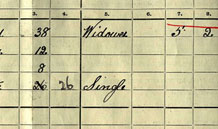 3. 4. 5. 6. 7. 8.
38 Widower 5 2
12
8
26 26 Single